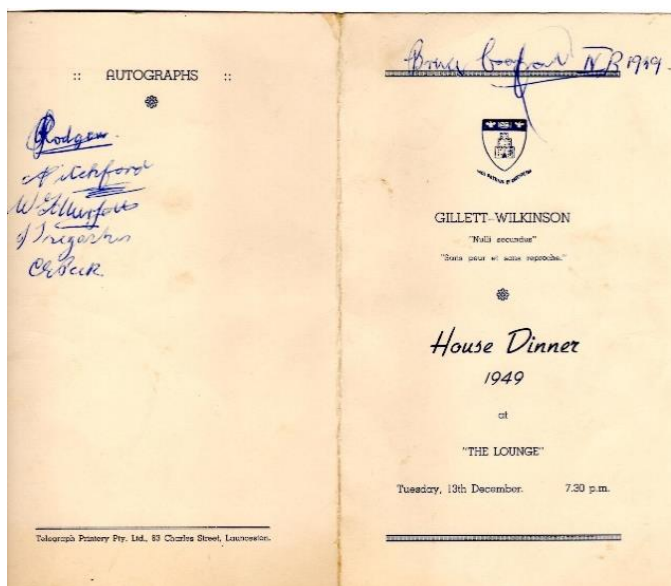 :: AUTOGRAPHS ::
Rodger
Pitchford
Telegraph Printery Pty. Ltd., 83 Charles Street, Launceston.
Bruce 1949
GILLETT-WILKINSON
"Nulli secundus"
"Sans peur et sans reproche."
House Dinner
1949
at
"THE LOUNGE"
Tuesday, 13th December. 7.30 p.m.